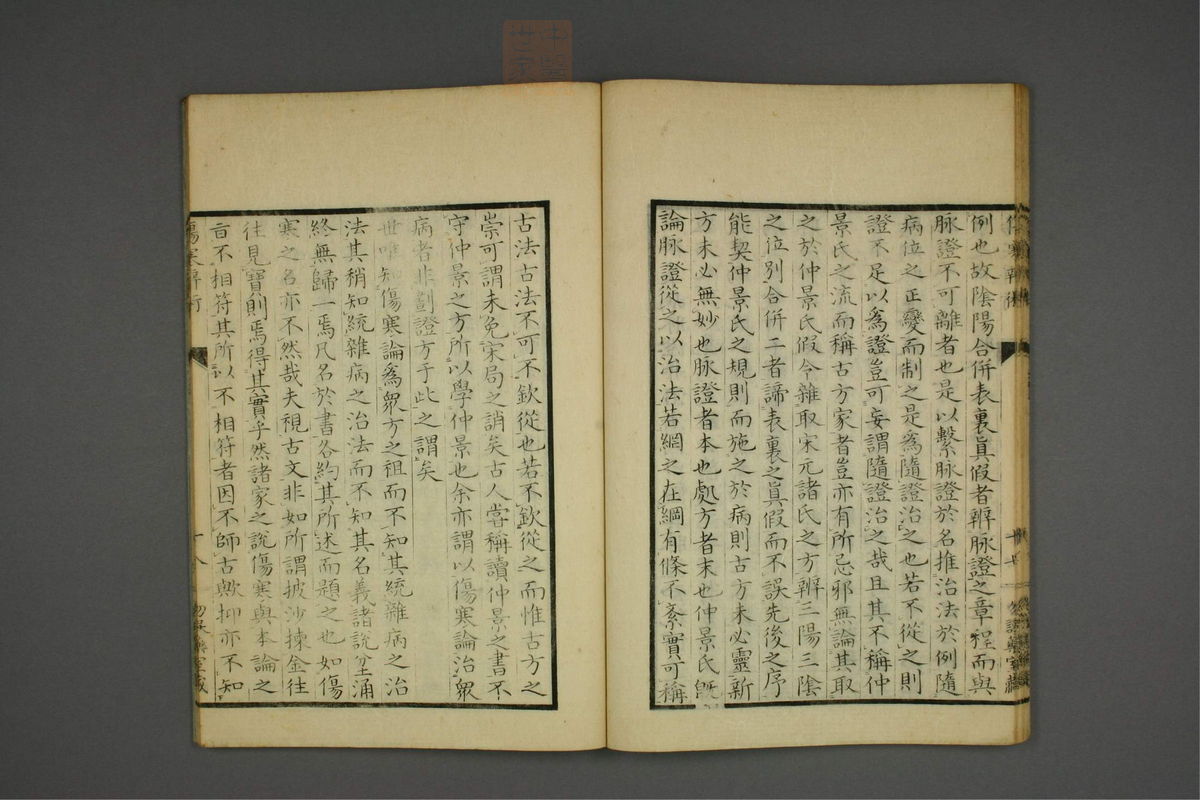 例也故陰陽合併表裏眞假者辨脉證之章程而與
脉證不可離者也是以繫脉證於名推治法於例隨
病位之正變而制之是為隨證治之也若不從之則
證不足以為證豈可妄謂隨證治之哉且其不稱仲
景氏之流而稱古方家者豈亦有所忌邪無論其取
之於仲景氏假令雜取宋元諸氏之方辨三陽三陰
之位別合併二者諦表裏之眞假而不誤先後之序
能契仲景氏之規則而施之於病則古方未必靈新
方未必無妙也脉證者本也處方者末也仲景氏旣
論脉證從之以治法若綱之在綱有條不紊實可稱
古法古法不可不欽從也若不欽從之而惟古方之
崇可謂未免宋局之誚矣古人嘗稱讀仲景之書不
守仲景之方所以學仲景也余亦謂以傷寒論治衆
病者非劃證方于此之謂矣
世唯知傷寒論為衆方之祖而不知其統雜病之治
法其稍知統雜病之治法而不知其名義諸說坌涌
終無歸一焉凡名於書各約其所述而題之也如傷
寒之名亦不然哉夫視古文非如所謂披沙揀金往
往見寶則焉得其實乎然諸家之說傷寒與本論之
旨不相符其所以不相符者因不師古歟抑亦不知
傷寒辨術
十八